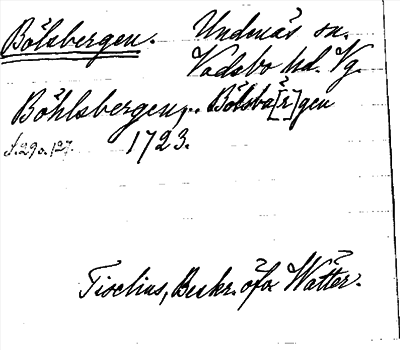 Bölsbergen. Undenäs sn.
Vadsbo hd. Vg.
Böhlsbergen, Bölsbä[r]gen
s. 29 o. 127. 1723.
Tiselius, Beskr. öfv. Wätter.